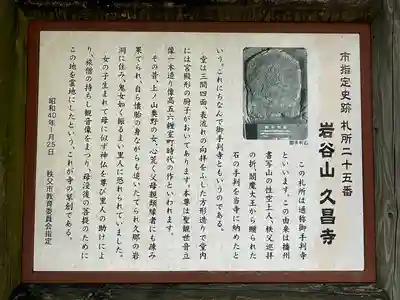 市指定史跡 札所二十五番
岩谷山 久昌寺
この札所は通称御手判寺
といいます。この由来は播州
書写山の性空上人、秩父巡拝
の折、閻魔大王から贈られた
石の手判を当寺に納めたと
いう。これにちなんで御手判寺ともいうのである。
堂は三間四面、表流れの向拝をふした方形造りで堂内
には宮殿形の厨子がおいてあります。本尊は聖観世音立
像一本造り像高五六糎室町時代の作といわれます。
その昔、上ノ山奥野の女、心荒く父母親類縁者にも疎み
果てられ、自ら懐胎の身ながらも追いたてられ久那の岩
洞に住み、鬼女如く振るまい里人に恐れられていました。
女の子生まれて母に似ず神仏を尊び里人の助けによ
り、旅僧の持ちし観音像をまつり、母没後の菩提のために
この地を霊地にしたという。これが寺の草創である。
昭和40年1月25日
秩父市教育委員会指定
御手判石